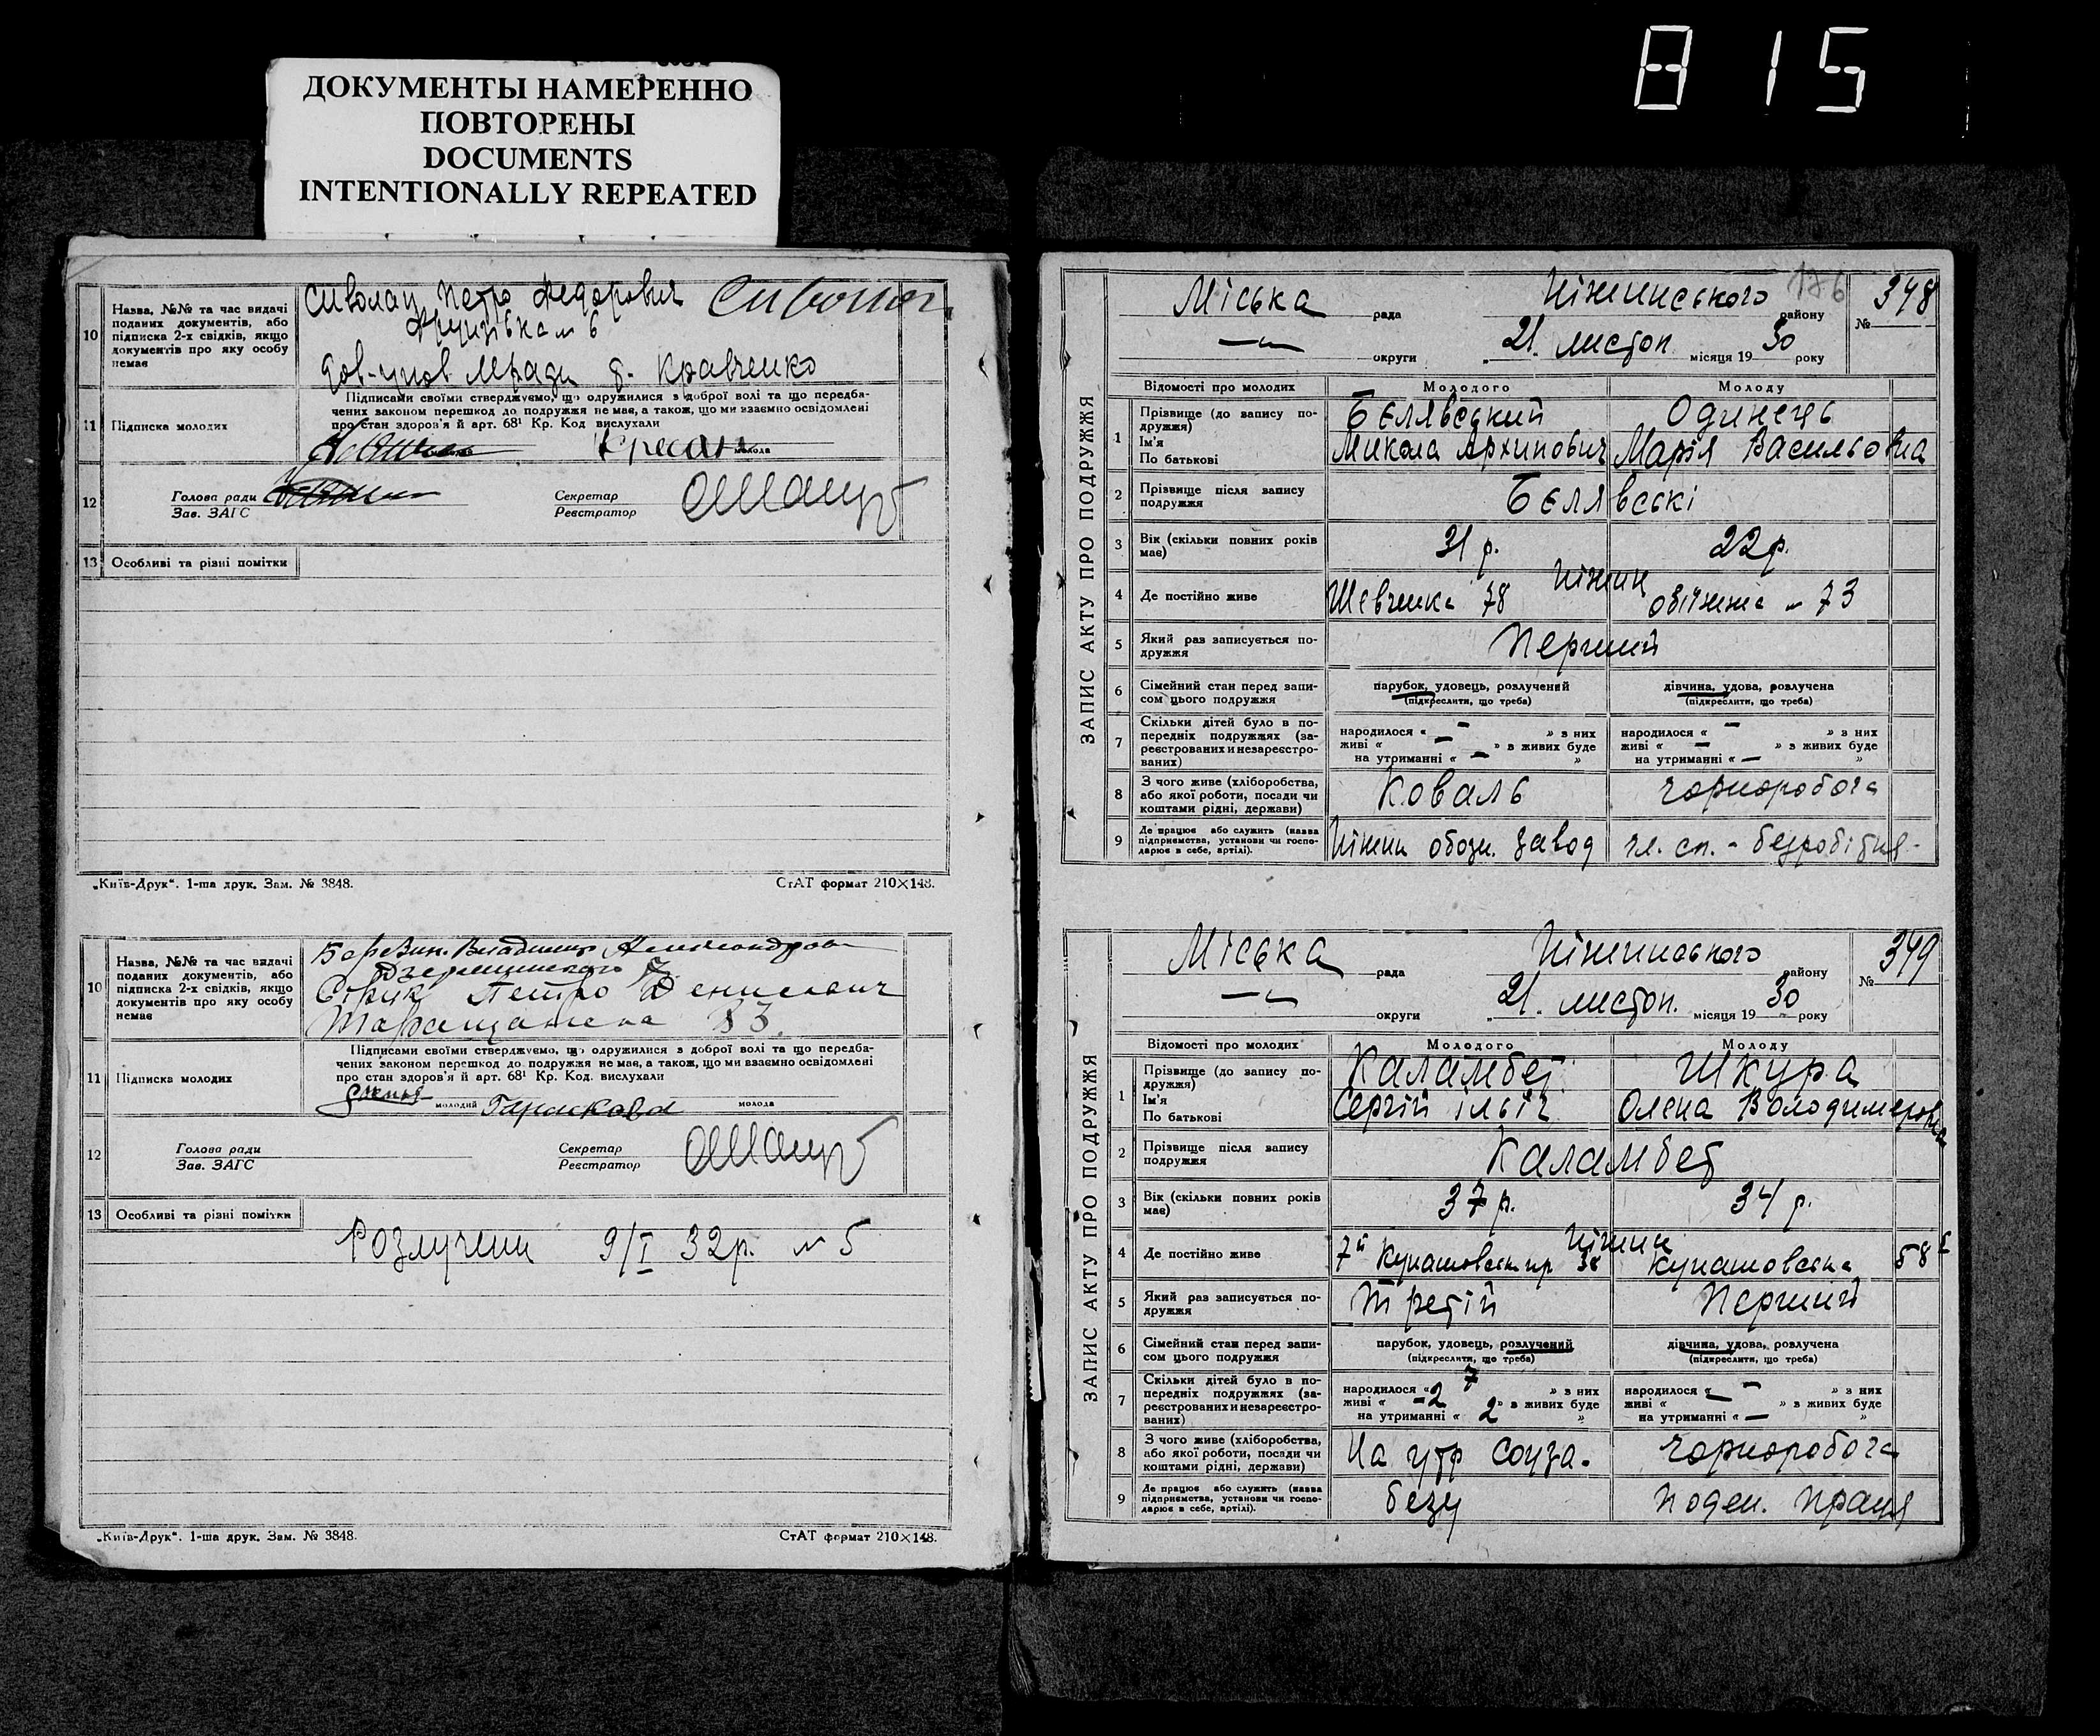 815
ДОКУМЕНТЫ НАМЕРЕННО
ПОВТОРЕНЫ
DOCUMENTS
INTENTIONALLY REPEATED
10 Назва, №№ та час видачі поданих документів, або підписка 2-х свідків, якщо документів про яку особу немає
Сиволап Петро Федорович
6
Кравченко
11 Підписка молодих
Підписами своїми стверджуємо, що одружилися з доброї волі та що передба-
чених законом перешкод до подружжя не має, а також, що ми взаємно освідомлені
про стан здоров'я й арт. 68¹ Кр. Код вислухали
молода
12 Голова ради
Зав. ЗАГС
Секретар
Реєстратор
13 Особливі та різні помітки
„Київ-Друк“. 1-ша друк. Зам. № 3848. СтАТ формат 210×148.
10 Назва, №№ та час видачі поданих документів, або підписка 2-х свідків, якщо документів про яку особу немає
Березин Владимир
Петро Денисович
11 Підписка молодих
Підписами своїми стверджуємо, що одружилися з доброї волі та що передба-
чених законом перешкод до подружжя не має, а також, що ми взаємно освідомлені
про стан здоров'я й арт. 68¹ Кр. Код. вислухали
молодий молода
12 Голова ради
Зав. ЗАГС
Секретар
Реєстратор
13 Особливі та різні помітки
Розлучени 9/I 32р. № 5
„Київ-Друк“. 1-ша друк. Зам. № 3848. СтАТ формат 210×148.
ЗАПИС АКТУ ПРО ПОДРУЖЖЯ
176
Міська рада Ніжинського району № 348
округи „21. листоп. місяця 1930 року
Відомості про молодих Молодого Молоду
1 Прізвище (до запису подружжя) Бєлявський Одинець
Ім'я По батькові Микола Архипович Марія Васильовна
2 Прізвище після запису подружжя Бєлявські
3 Вік (скільки повних років має) 31 р. 22р.
4 Де постійно живе Ніжин
Шевченка 78 № 73
5 Який раз записується подружжя Перший
6 Сімейний стан перед записом цього подружжя парубок, удовець, розлучений дівчина, удова, розлучена
(підкреслити, що треба) (підкреслити, що треба)
7 Скільки дітей було в попередніх подружжях (зареєстрованих и незареєстрованих)
народилося « – » з них народилося « – » з них
живі « – » з живих буде живі « – » з живих буде
на утриманні « – » на утриманні « – »
8 З чого живе (хліборобства, або якої роботи, посади чи коштами рідні, держави) Коваль чорноробоча
9 Де працює або служить (назва підприємства, установи чи господарює в себе, артілі). Ніжин обозн. завод чл. сп. - безробітня -
ЗАПИС АКТУ ПРО ПОДРУЖЖЯ
Міська рада Ніжинського району № 349
округи „21. листоп. місяця 1930 року
Відомості про молодих Молодого Молоду
1 Прізвище (до запису подружжя) Каламбет Шкура
Ім'я По батькові Сергій Ільїч Олена Володимеровна
2 Прізвище після запису подружжя Каламбет
3 Вік (скільки повних років має) 37 р. 34 р.
4 Де постійно живе Ніжин
7й Кунашовськ пр 38 Кунашовська 58
5 Який раз записується подружжя Третій Перший
6 Сімейний стан перед записом цього подружжя парубок, удовець, розлучений дівчина, удова, розлучена
(підкреслити, що треба) (підкреслити, що треба)
7 Скільки дітей було в попередніх подружжях (зареєстрованих и незареєстрованих)
народилося « 7 » з них народилося « – » з них
живі « 2 » з живих буде живі « – » з живих буде
на утриманні « 2 » на утриманні « – »
8 З чого живе (хліборобства, або якої роботи, посади чи коштами рідні, держави) На утр соцза- чорноробоча
9 Де працює або служить (назва підприємства, установи чи господарює в себе, артілі). безу поден. праця